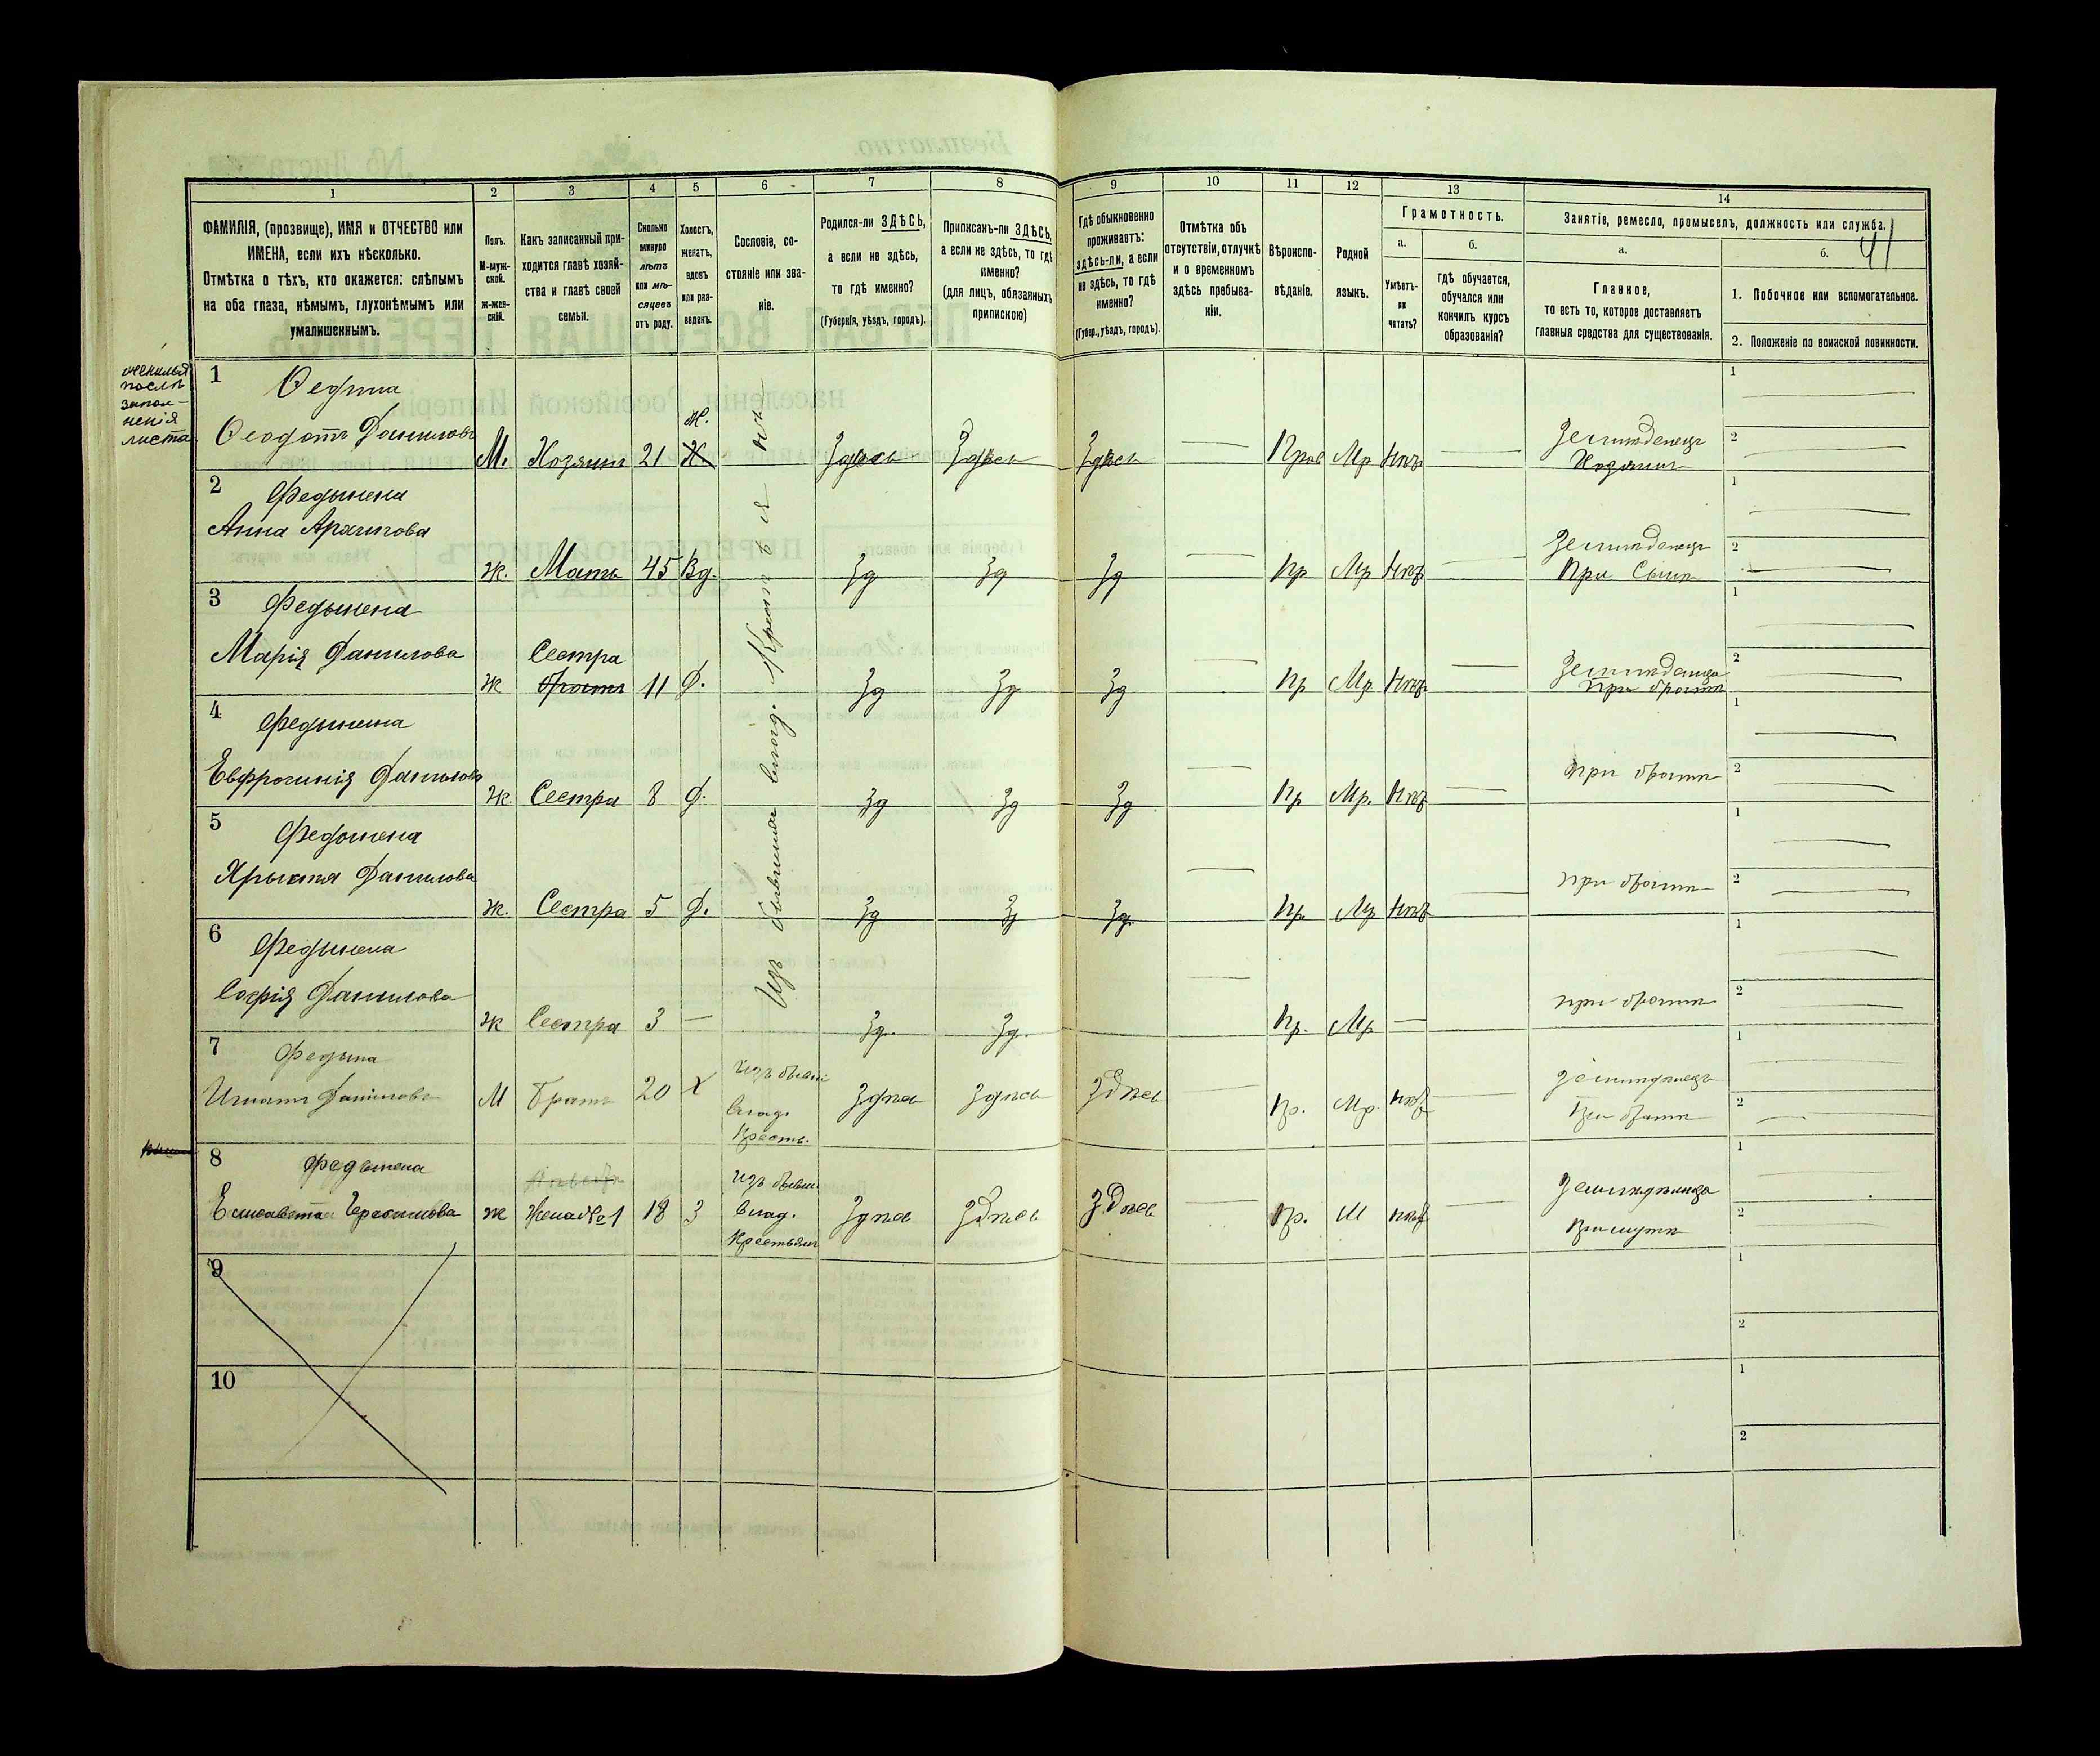 1 2 3 4 5 6 7 8 9 10 11 12 13 14
ФАМИЛІЯ, (прозвище), ИМЯ и ОТЧЕСТВО или
ИМЕНА, если ихъ нѣсколько.
Отмѣтка о тѣхъ, кто окажется: слѣпымъ
на оба глаза, нѣмымъ, глухонѣмымъ или
умалишеннымъ.
Полъ.
М-муж-
ской.
ж-жен-
скій.
Какъ записанный при-
ходится главѣ хозяй-
ства и главѣ своей
семьи.
Сколько
минуло
лѣтъ
или мѣ-
сяцевъ
отъ роду.
Холостъ,
женатъ,
вдовъ
или раз-
веденъ.
Сословіе, со-
стояніе или зва-
ніе.
Родился-ли ЗДѢСЬ,
а если не здѣсь,
то гдѣ именно?
(Губернія, уѣздъ, городъ).
Приписанъ-ли ЗДѢСЬ,
а если не здѣсь, то гдѣ
именно?
(для лицъ, обязанныхъ
припискою)
Гдѣ обыкновенно
проживаетъ:
здѣсь-ли, а если
не здѣсь, то гдѣ
именно?
(Губер., уѣздъ, городъ).
Отмѣтка объ
отсутствіи, отлучкѣ
и о временномъ
здѣсь пребыва-
ніи.
Вѣроиспо-
вѣданіе.
Родной
языкъ.
Грамотность.
а.
Умѣетъ-
ли
читать?
б.
гдѣ обучается,
обучался или
кончилъ курсъ
образованія?
Занятіе, ремесло, промыселъ, должность или служба.
41
а.
Главное,
то есть то, которое доставляетъ
главныя средства для существованія.
б.
1. Побочное или вспомогательное.
2. Положеніе по воинской повинности.
женился
послѣ
запол-
ненія
листа
Изъ бывших влад. Крестьян
1
Ѳедына
Ѳеодотъ Даниловъ
М. Хозяинъ 21 Ж. Здѣсь Здѣсь Здѣсь — Прав Мр Нѣтъ —
Земледелецъ
Хозяинъ
2
Федынена
Анна Архипова
Ж. Мать 45 Вд. Зд Зд Зд — Пр Мр Нѣтъ —
Земледелецъ
При Сынѣ
3
Федынена
Марія Данилова
Ж Сестра 11 Д. Зд Зд Зд — Пр Мр Нѣтъ —
При братѣ
4
Федынена
Евфросинія Данилова
Ж. Сестра 8 Д. Зд Зд Зд — Пр Мр. Нѣтъ —
при братѣ
5
Федынена
Данилова
Ж. Сестра 5 Д. Зд Зд Зд — Пр. Мр Нѣтъ —
при братѣ
6
Федынена
Софія Данилова
Ж Сестра 3 — Зд. Зд. — Пр. Мр —
при братѣ
7
Федына
Игнатъ Даниловъ
М Братъ 20 Х
Изъ бывш
Влад.
Крестъ.
Здѣсь Здѣсь Здѣсь — Пр. Мр. нѣтъ —
При братѣ
8
Федынена
Елисавета Герасимова
Ж Жена №1 18 З
Изъ бывш
Влад.
Крестьян
Здѣсь Здѣсь Здѣсь — Пр. М нѣтъ —
При мужѣ
9
10